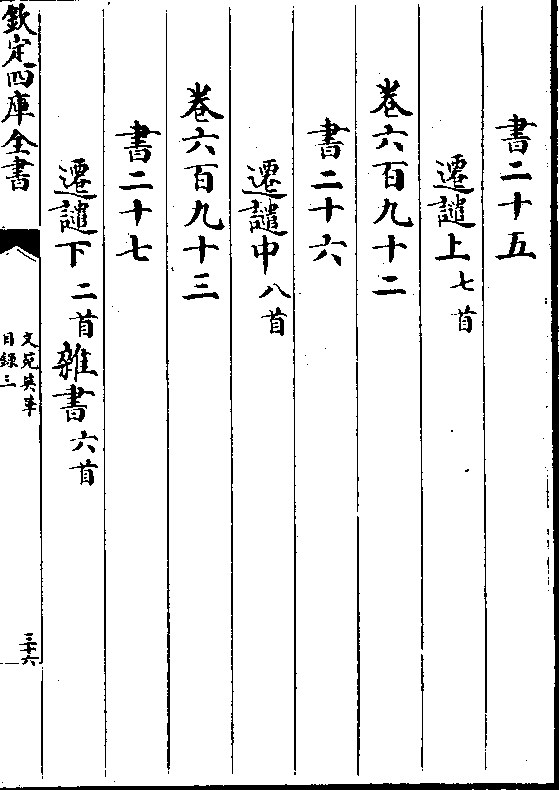 書二十五
遷謫上七首
卷六百九十二
書二十六
遷謫中八首
卷六百九十三
書二十七
遷謫下二首雜書六首
欽定四庫全書
文苑英華
目録三
三十六